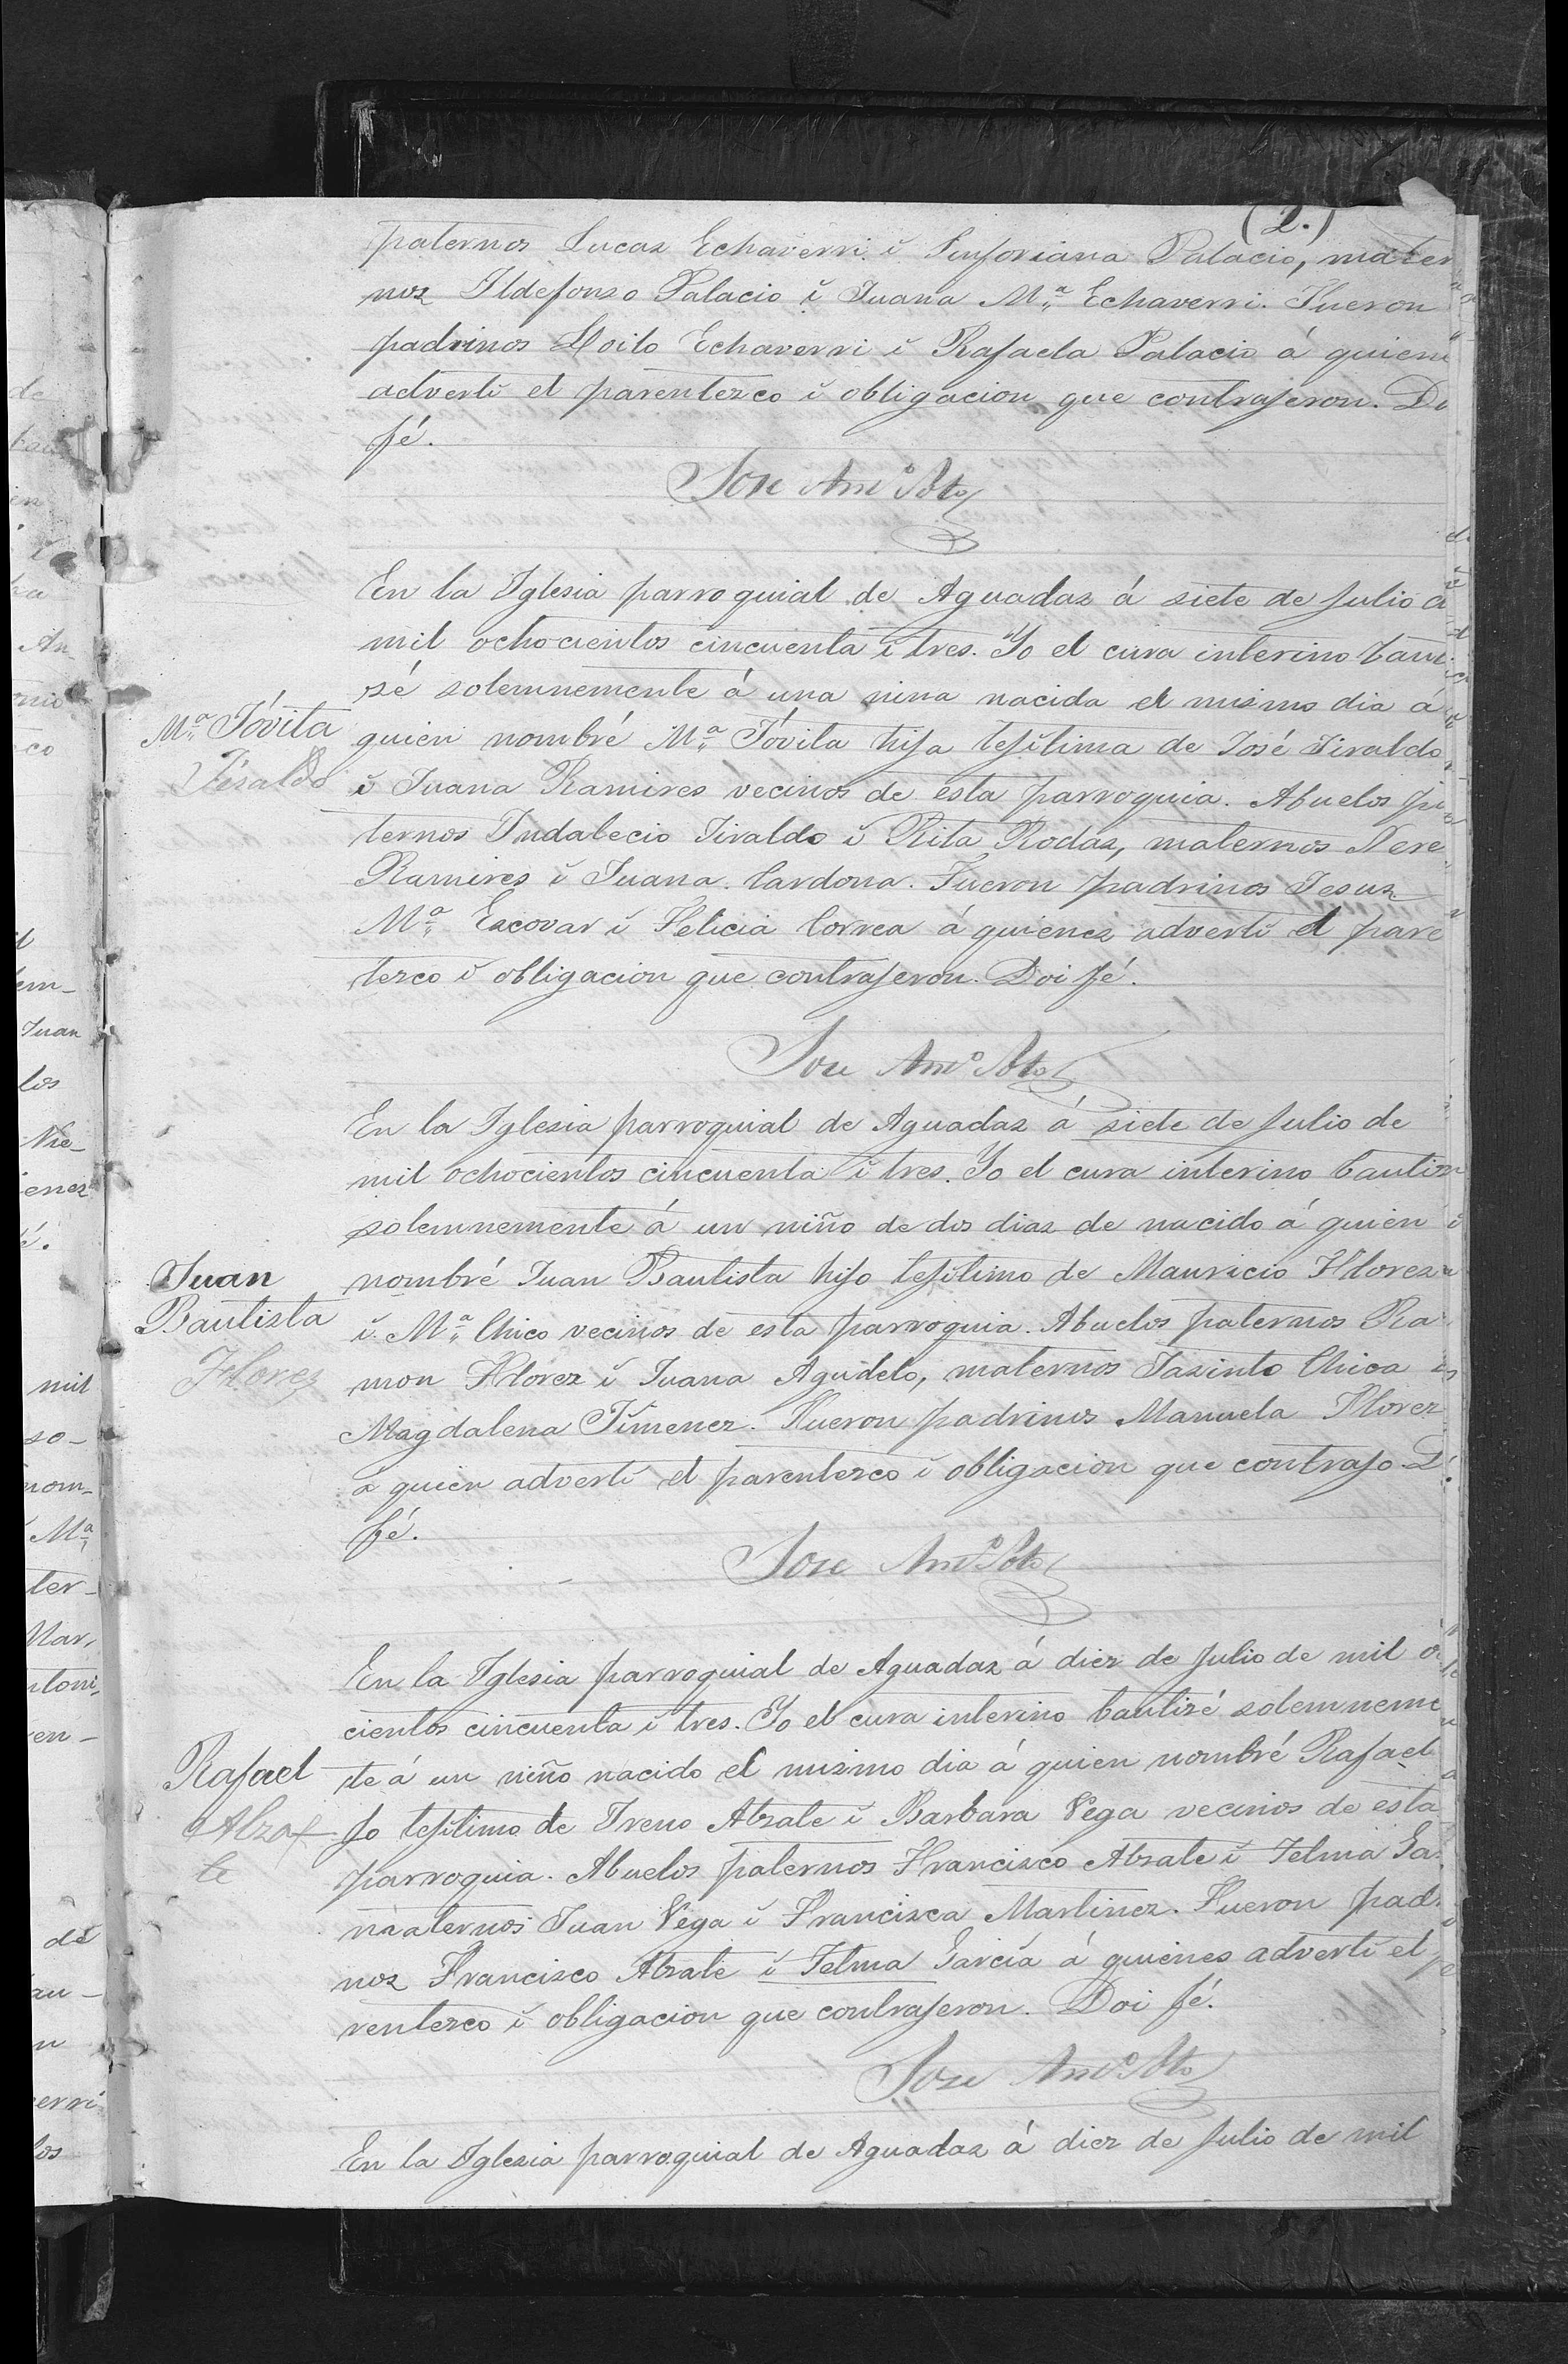 (2.)
paternos Lucas Echaverri i Sinforiana Palacio, mater
nos Ildefonso Palacio i Juana Mª Echaverri. Fueron
padrinos Loilo Echaverri i Rafaela Palacio á quiene
adverti el parentezco i obligacion que contrajeron. Do
fé.
Jose Anto Soto
En la Iglesia parroquial de Aguadas á siete de Julio d
mil ochocientos cincuenta i tres. Yo el cura interino baui
sé solemnemente á una nina nacida el mismo dia á
Mª Jóvita
Jiraldo
quien nombré Mª Jóvita hija lejítima de José Jiraldo
i Juana Ramires vecinos de esta parroquia. Abuelos pa
ternos Indalecio Jiraldo i Rita Rodas, maternos Nere
Ramires i Juana Cardona. Fueron padrinos Jesus
Mª Escovar i Felicia Correa á quienes adverti el pare
tezco i obligacion que contrajeron. Doi fé.
Jose Anto Soto
En la Iglesia parroquial de Aguadas á siete de Julio de
mil ochocientos cincuenta i tres. Yo el cura interino bautiz
solemnemente á un niño de dos dias de nacido á quien
Juan
Bautista
Florez
nombré Juan Bautista hijo lejítimo de Mauricio Florez
i Mª Chico vecinos de esta parroquia. Abuelos paternos Ra
mon Florez i Juana Agudelo, maternos Jasinto Chica
Magdalena Jimenez. Fueron padrinos Manuela Florez
a quien adverti el parentezco i obligacion que contrajo. D
fé.
Jose Anto Soto
En la Iglesia parroquial de Aguadas á diez de Julio de mil o
cientos cincuenta i tres. Yo el cura interino bautizé solemneme
Rafael
Alzate
te á un niño nacido el mismo dia á quien nombré Rafael
jo lejítimo de Ireno Alzate i Barbara Vega vecinos de esta
parroquia. Abuelos paternos Francisco Alzate i Telma Ga
maternos Juan Vega i Francisca Martinez. Fueron pad
nos Francisco Alzate i Telma García á quienes adverti el p
rentezco i obligacion que contrajeron. Doi fé.
Jose Anto Soto
En la Iglesia parroquial de Aguadas á diez de Julio de mil